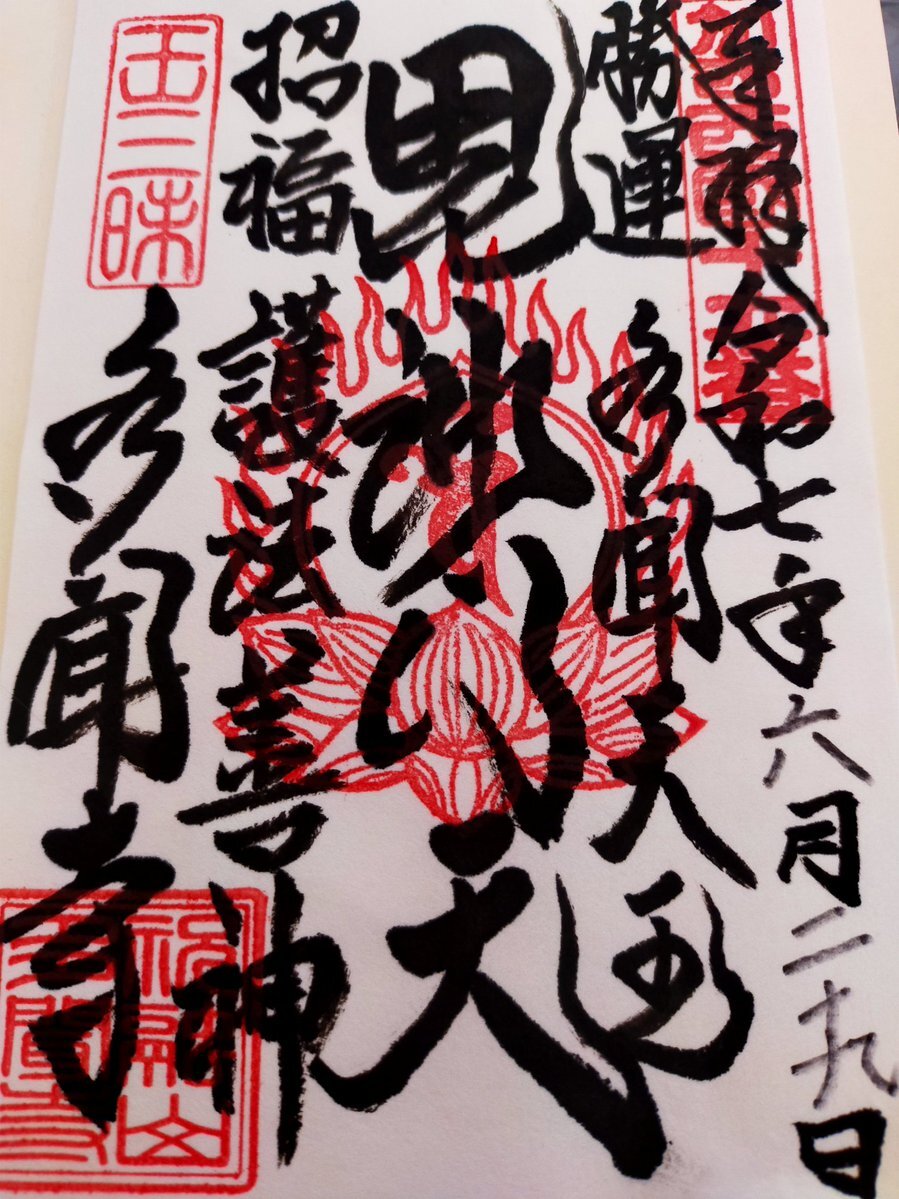 奉拝 令和七年六月二十九日
勝運 多聞天王
毘沙門天
招福 護法善神
多聞寺